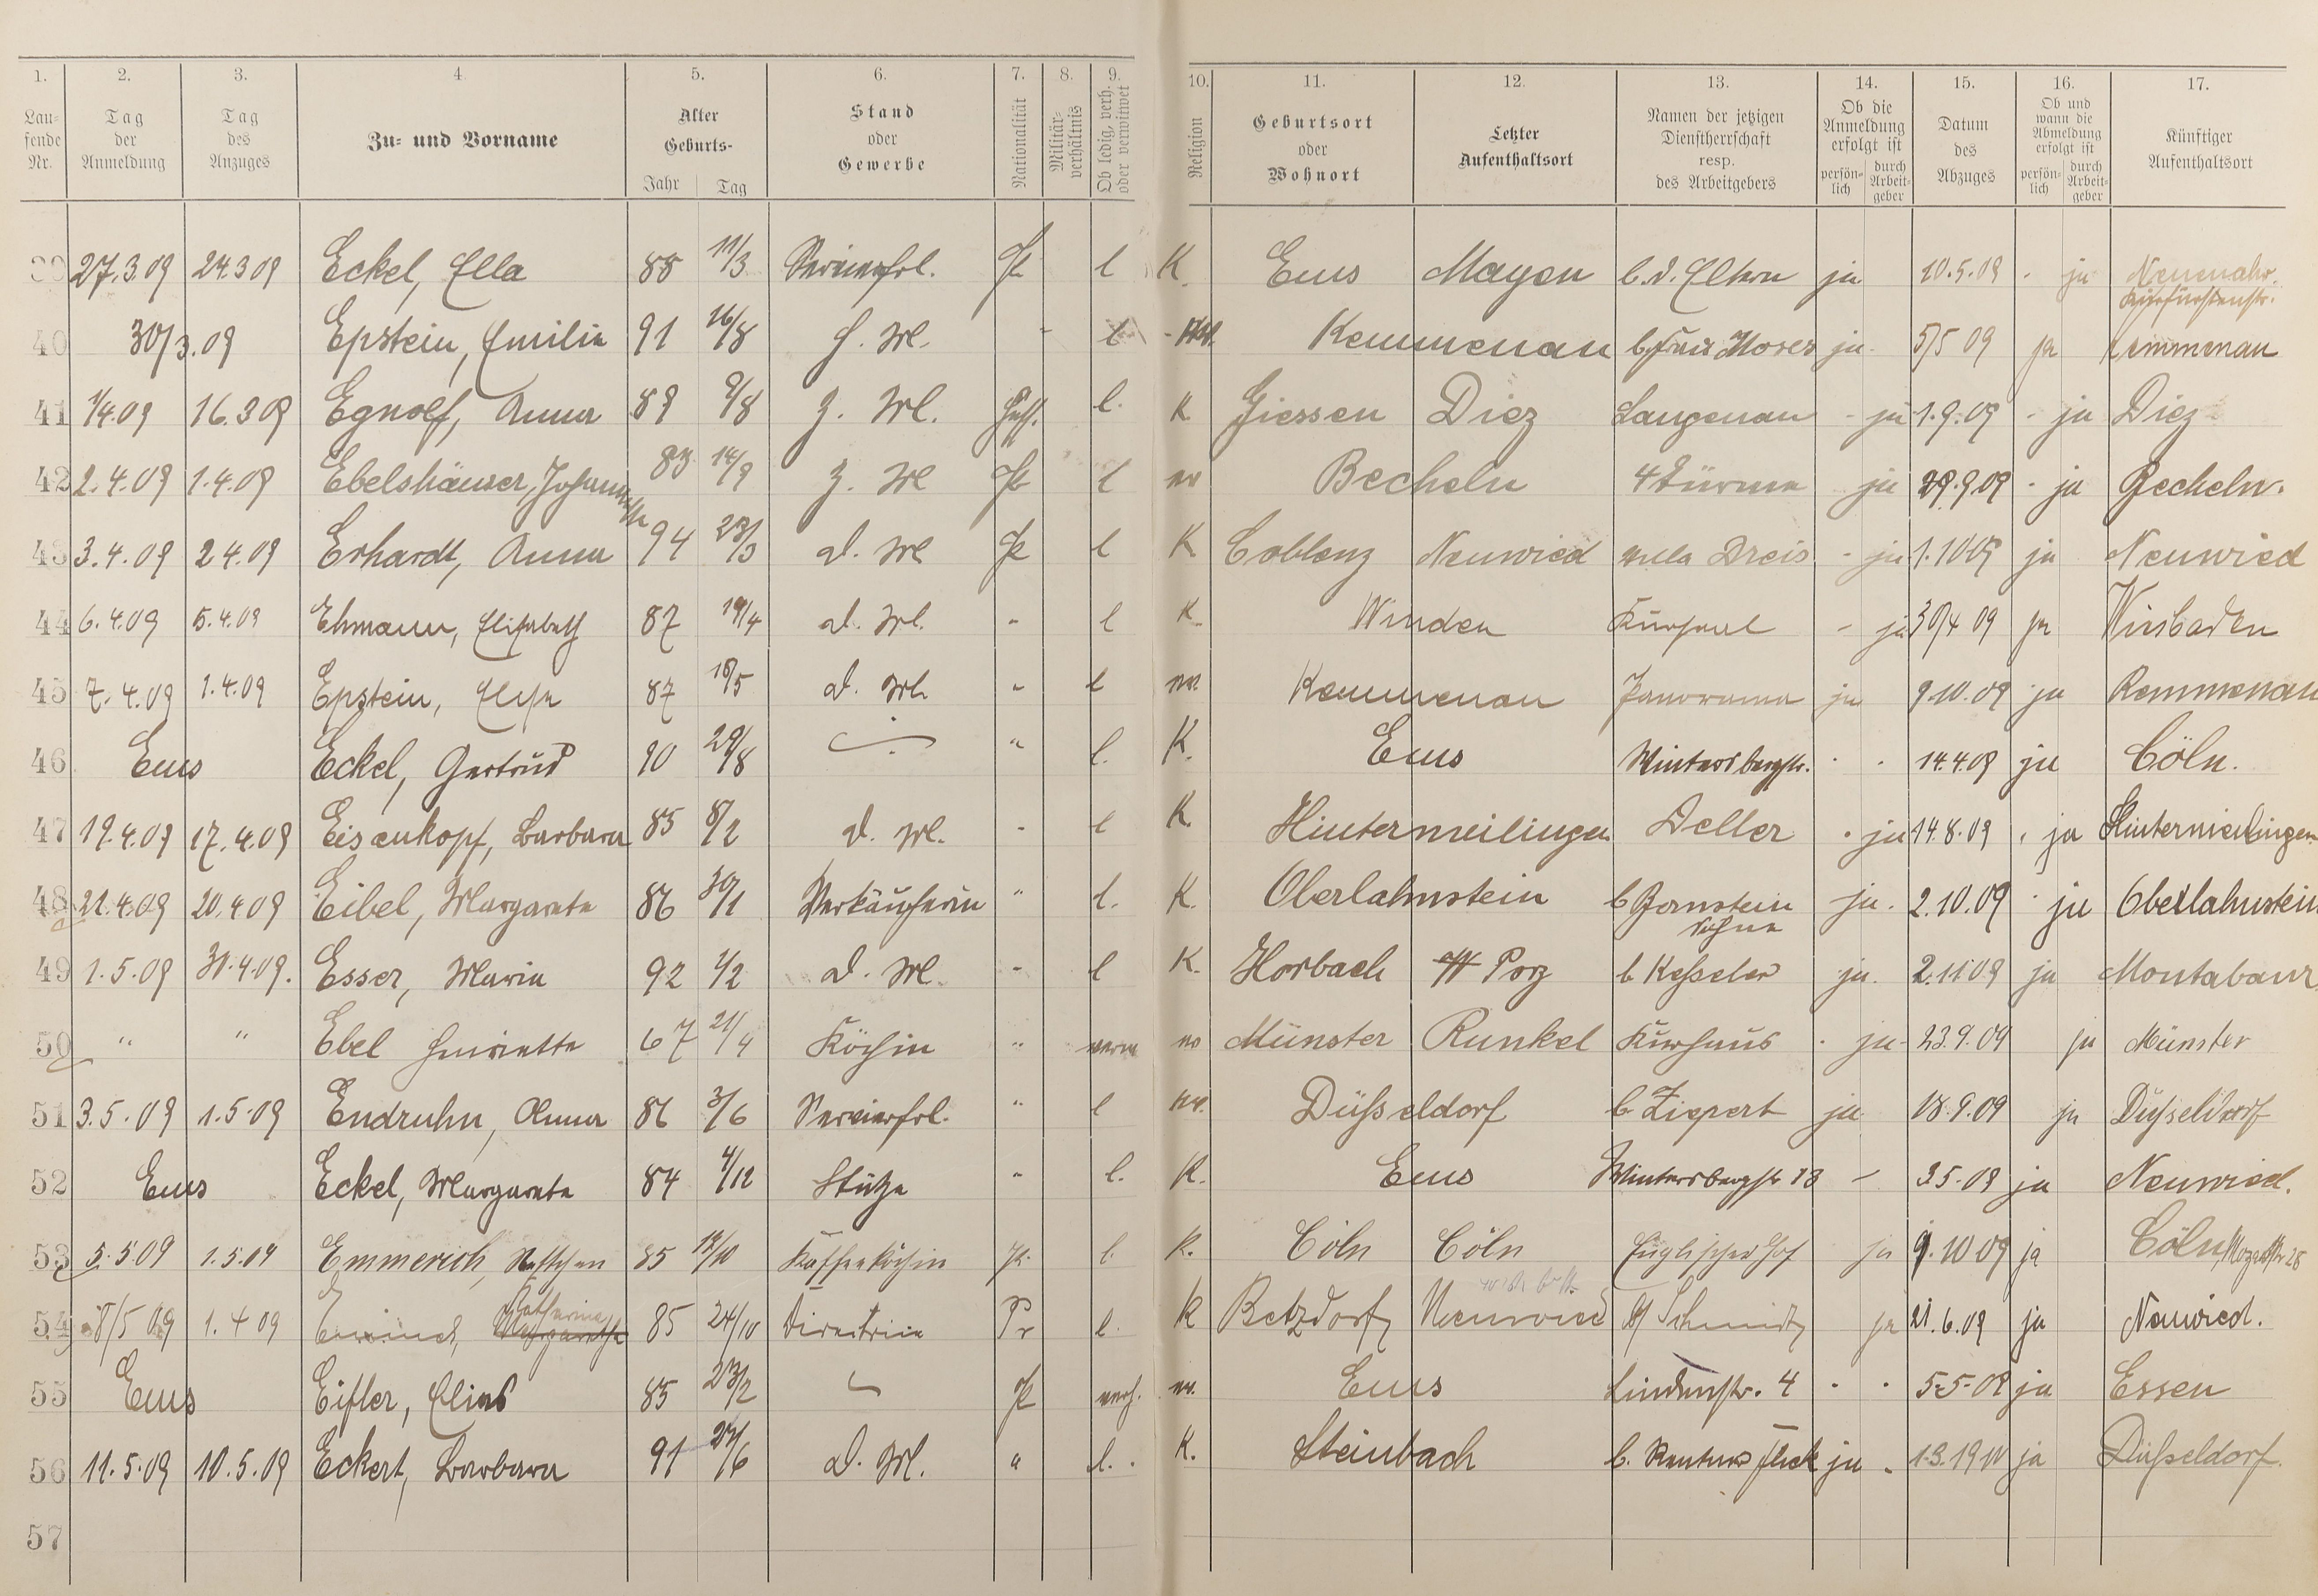 1. 2. 3. 4 5. 6. 7. 8. 9. 10. 11. 12. 13. 14. 15. 16. 17.
Lau-
fende
Nr.
Tag
der
Anmeldung
Tag
des
Anzuges
Zu- und Vorname
Alter
Geburts-
Jahr Tag
Stand
oder
Gewerbe
Nationalität
Militär-
verhältnis
Ob ledig, verh.
oder verwitwet
Religion
Geburtsort
oder
Wohnort
Letzter
Aufenthaltsort
Namen der jetzigen
Dienstherrschaft
resp.
des Arbeitgebers
Ob die
Anmeldung
erfolgt ist
persön-
lich
durch
Arbeit-
geber
Datum
des
Abzuges
Ob und
wann die
Abmeldung
erfolgt ist
persön-
lich
durch
Arbeit-
geber
Künftiger
Aufenthaltsort
39 27.3.09 24.3 09 Eckel, Ella 88 11/3 Servierfrl. Pr l K. Ems Mayen b. d. Eltern ja 10.5.09 - ja Neuenahr.
Kurfürstenstr.
40 30/3.09 Epstein, Emilie 91 16/8 - l Kemmenau b. Frau Moses ja 5/5 09 ja Kemmenau
41 1/4.09 16.3 09 Egnolf, Anna 89 9/8 Z. Ml. Hess. l. K Giessen Diez Langenau - ja 1.9.09 - ja Diez
42 2.4.09 1.4.09 Ebelshäuser, Johannette 83 14/9 Z. Ml Pr l ev Becheln 4 Türme ja 29.9.09 - ja Becheln.
43 3.4.09 2 4.09 Erhardt, Anna 94 23/3 d. Ml Pr l K Coblenz Neuwied villa Dreis - ja 1.10 09 ja Neuwied
44 6.4.09 5.4.09 Ehmann, Elisabeth 87 19/4 d. Ml. - l K. Winden Kursaal - ja 30/4 09 ja Wiesbaden
45 7.4.09 1.4.09 Epstein, Elise 87 18/5 d. Ml. " l ev. Kemmenau Panorama ja 9.10.09 ja Kemmenau
46 Ems Eckel, Gertrud 90 29/8 " l. K. Ems Wintersbergstr. - - 14.4.09 ja Cöln.
47 19.4.09 17.4.09 Eisenkopf, Barbara 85 8/2 d. Ml. - l K. Hintermeilingen Deller - ja 14.8.09 - ja Hintermeilingen
48 21.4.09 20.4 09 Eibel, Margarete 86 30/1 Verkäuferin " l. K. Oberlahnstein b Bornstein ja. 2.10.09 - ja Oberlahnstein
Söhne
49 1.5.09 31.4.09. Esser, Maria 92 1/2 d. Ml. - l K. Horbach Porz b Kesseler ja. 2.11 09 ja Montabaur
50 " " Ebel Henriette 67 21/4 Köchin " verw ev Münster Runkel Kurhaus - ja 23.9.09 ja Münster
51 3.5.09 1.5.09 Endruhn, Anna 86 3/6 Servierfrl. " l ev. Düsseldorf b. Ziepert ja 18.9.09 ja Düsseldorf
52 Ems Eckel, Margarete 84 4/12 Stütze " l. K. Ems Wintersbergstr 13 - 3 5.09 ja Neuwied.
53 5.5 09 1.5.09 Emmerich, Nettchen 85 12/10 Kaffeeköchin Pr. l. K. Cöln Cöln Englischer Hof ja 9.10 09 ja Cöln, Mozartstr 28
54 8/5 09 1.4 09 Katharina 85 24/10 Directrice Pr l. K Betzdorf Neuwied Schmidt ja 21.6.09 ja Neuwied.
55 Ems Eifler, Elias 85 23/2 Pr verh. ev. Ems Lindenstr. 4 - - 5-5-09 ja Essen
56 11.5.09 10.5.09 Eckert, Barbara 91 27/6 d. Ml. " l. K. Steinbach b. Rentner Fleck ja - 1.3.1910 ja Düsseldorf.
57